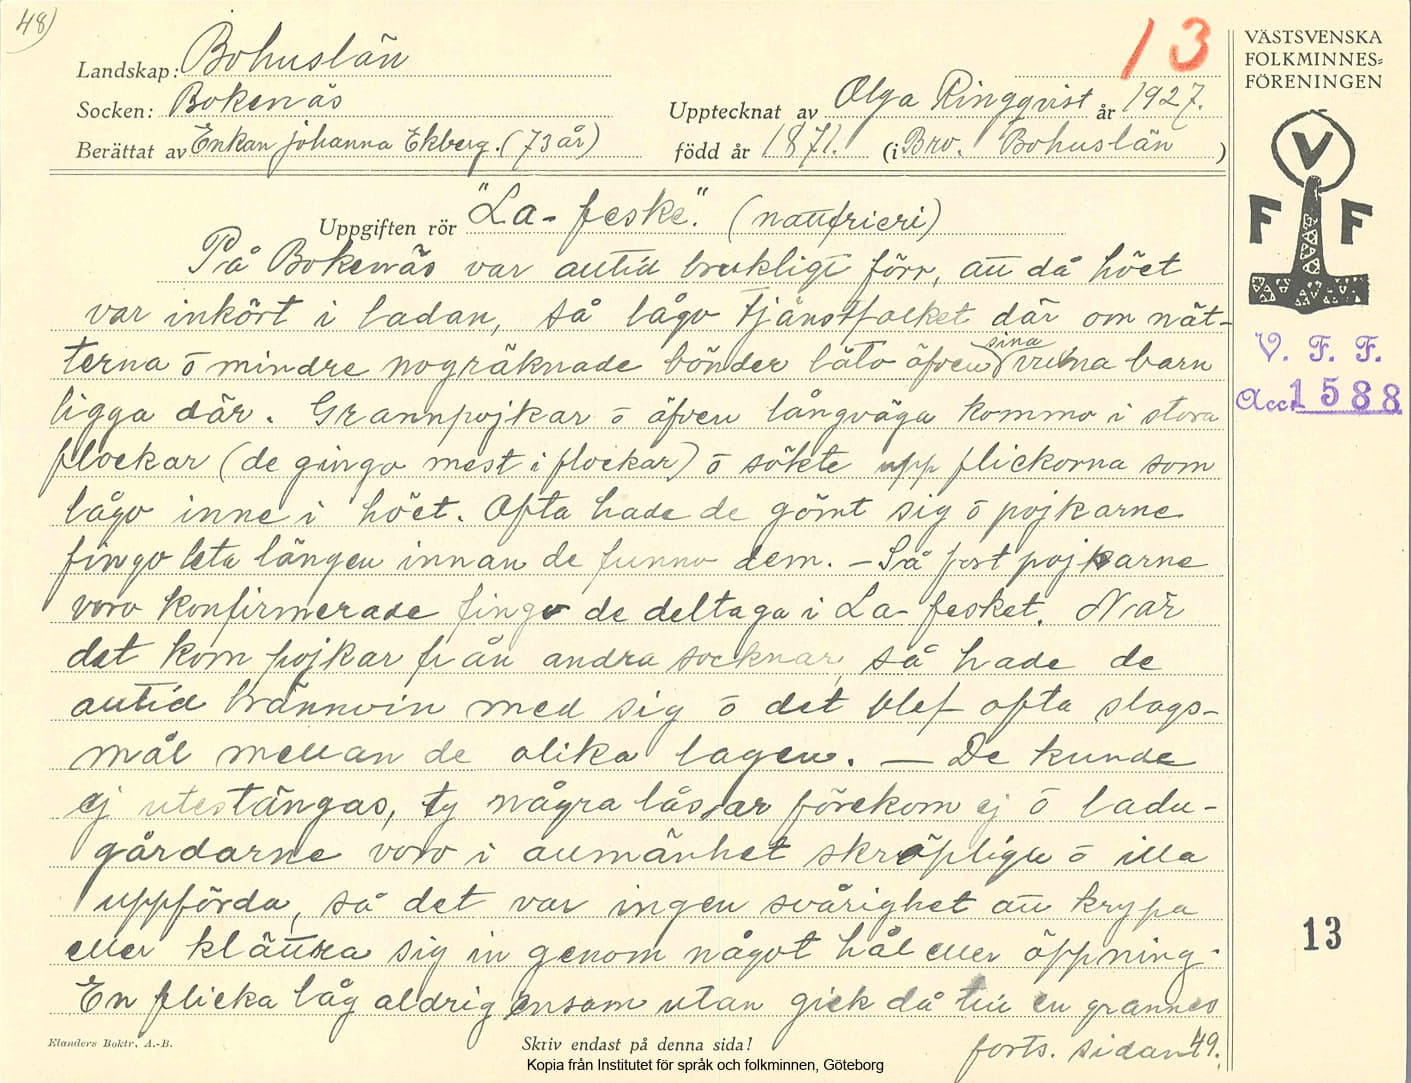 48)
13
Landskap: Bohuslän
Socken: Bokenäs
Upptecknat av Olga Ringqvist år 1927.
Berättat av Enkan Johanna Ekberg. (73 år)
född år 1871. (i Bro. Bohuslän )
VÄSTSVENSKA
FOLKMINNES=
FÖRENINGEN
V
F F
V. F. F.
Acc. 1588
Uppgiften rör "La-feske". (nattfrieri)
På Bokenäs var alltid brukligt förr, att då höet
var inkört i ladan, så lågo tjänstfolket där om nät-
terna o mindre nogräknade bönder läto äfven sina vuxna barn
ligga där. Grannpojkar o äfven långväga kommo i stora
flockar (de gingo mest i flockar) o sökte upp flickorna som
lågo inne i höet. Ofta hade de gömt sig o pojkarne
fingo leta längen innan de funno dem. – Så fort pojkarne
voro konfirmerade fingo de deltaga i La-fesket. När
det kom pojkar från andra socknar, så hade de
alltid brännvin med sig o det blef ofta slags-
mål mellan de olika lagen. – De kunde
ej utestängas, ty några lås, ar förekom ej o ladu-
gårdarne voro i allmänhet skräpliga o illa
uppförda, så det var ingen svårighet att krypa
eller klättra sig in genom något hål eller öppning.
En flicka låg aldrig ensam utan gick då till en grannes
forts. sidan 49.
13
Elanders Boktr. A.-B.
Skriv endast på denna sida!
Kopia från Institutet för språk och folkminnen, Göteborg